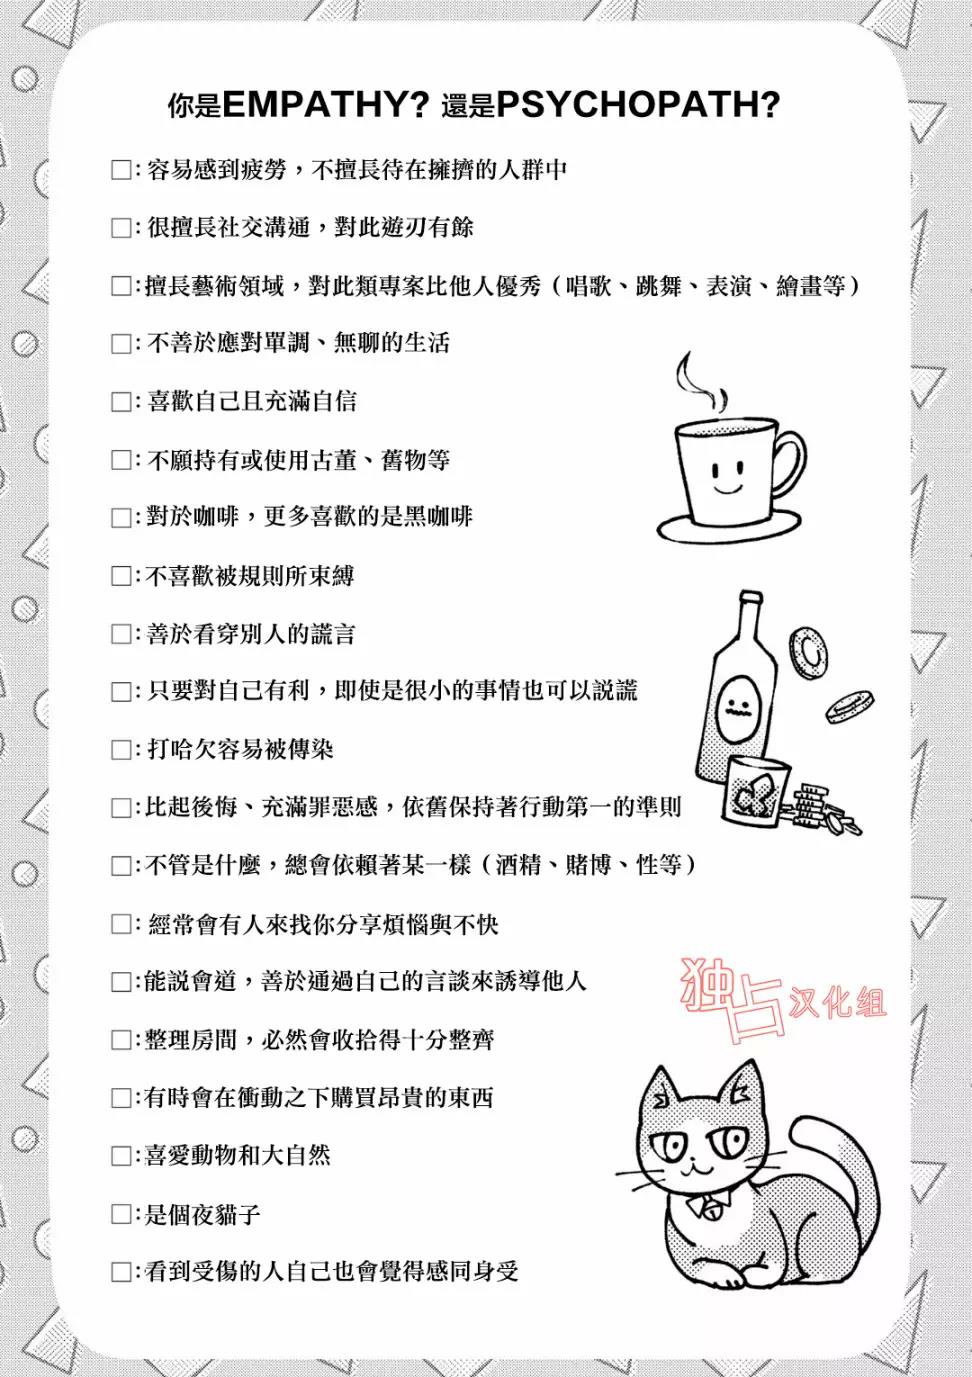 你是EMPATHY? 還是PSYCHOPATH?
□: 容易感到疲勞，不擅長待在擁擠的人群中
□: 很擅長社交溝通，對此遊刃有餘
□:擅長藝術領域，對此類專案比他人優秀（唱歌、跳舞、表演、繪畫等）
□: 不善於應對單調、無聊的生活
□: 喜歡自己且充滿自信
□: 不願持有或使用古董、舊物等
□: 對於咖啡，更多喜歡的是黑咖啡
□: 不喜歡被規則所束縛
□: 善於看穿別人的謊言
□: 只要對自己有利，即使是很小的事情也可以説謊
□: 打哈欠容易被傳染
□: 比起後悔、充滿罪惡感，依舊保持著行動第一的準則
□:不管是什麼，總會依賴著某一樣（酒精、賭博、性等）
□: 經常會有人來找你分享煩惱與不快
□:能説會道，善於通過自己的言談來誘導他人
□:整理房間，必然會收拾得十分整齊
□:有時會在衝動之下購買昂貴的東西
□:喜愛動物和大自然
□:是個夜貓子
□:看到受傷的人自己也會覺得感同身受
独占汉化组